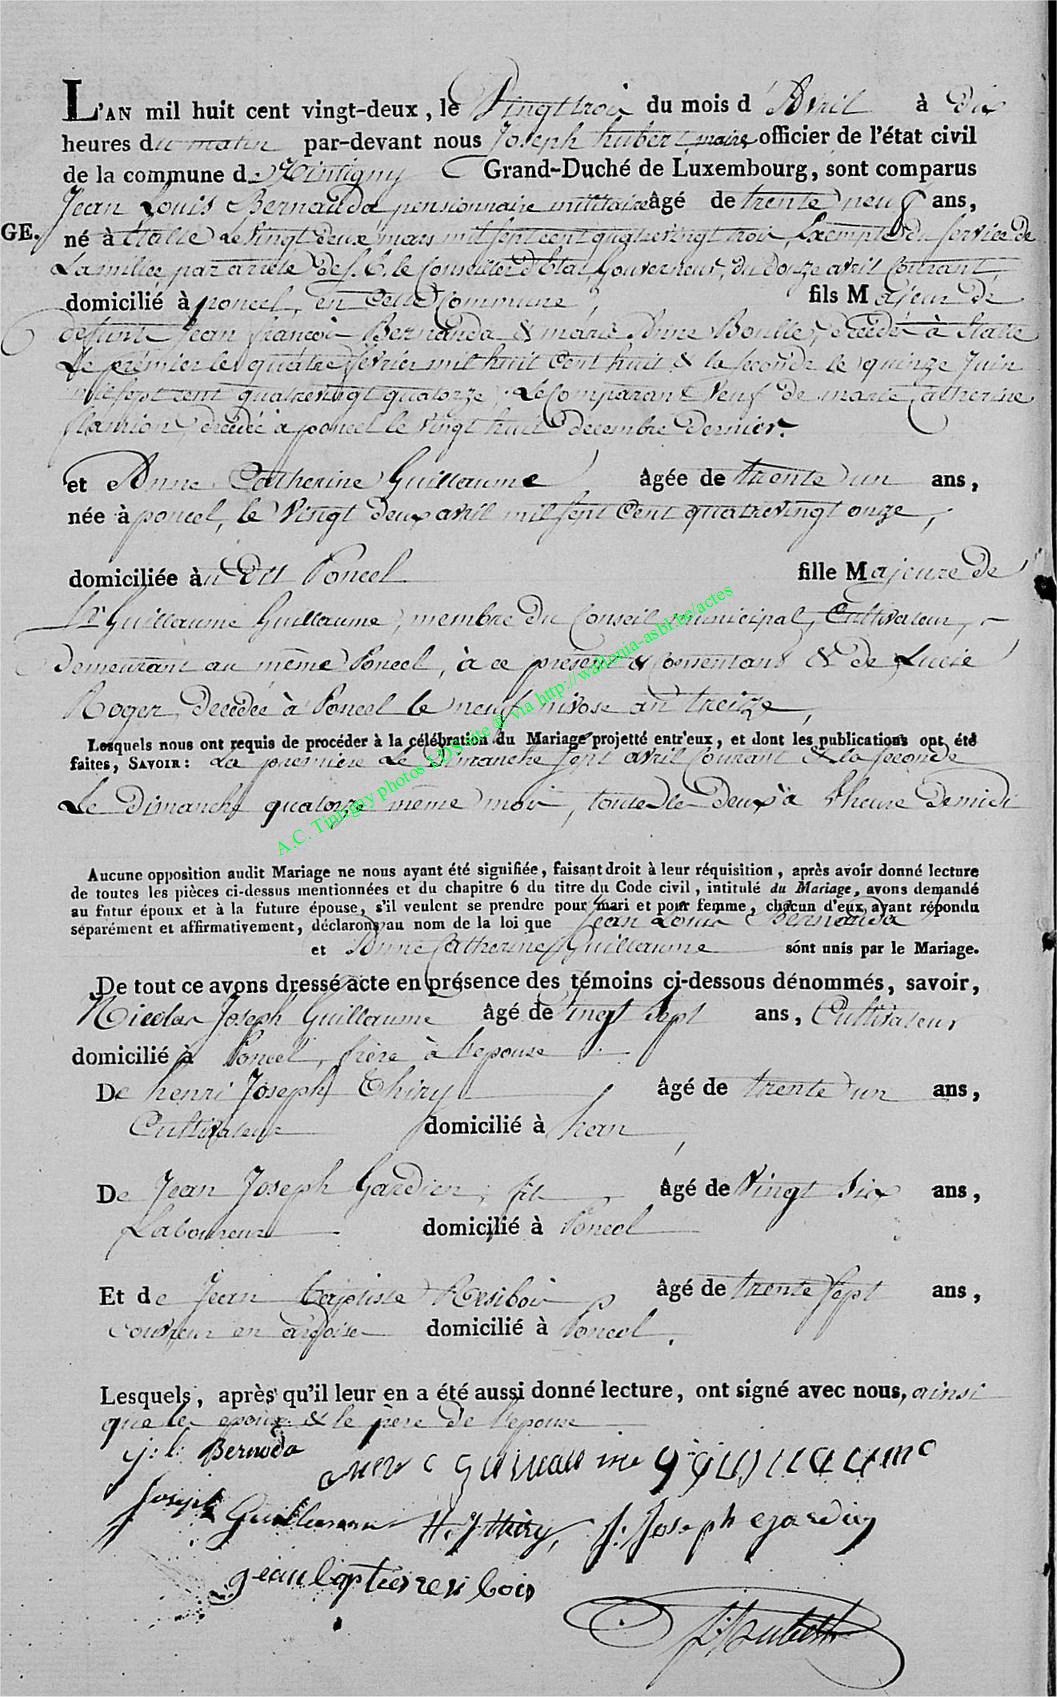 L'AN mil huit cent vingt-deux, le Vingt trois du mois d'Avril à dix
heures du matin par-devant nous Joseph hubert, maire, officier de l'état civil
de la commune de Tintigny Grand-Duché de Luxembourg, sont comparus
Jean Louis Bernauda pensionnaire militaire âgé de trente neuf ans,
GE.
né à Etalle le vingt deux mars mil sept cent quatrevingt trois, Exempte du service de
La milice par arrêté de S. E. le Conseiller d'Etat, Gouverneur, du douze avril Courant,
domicilié à poncel, en cette Commune fils Majeur de
defunt Jean francois Bernauda & marie Anne Boulle, décédé à Etalle
Le premier le quatre fevrier mil huit cent huit & la seconde le quinze Juin
mil sept cent quatrevingt quatorze, Le Comparant Veuf de marie Catherine
décédée a poncel le vingt huit decembre dernier.
et Anne Catherine Guillaume âgée de trente un ans,
née à poncel, le vingt deux avril mil sept Cent quatrevingt onze,
domiciliée au dit Poncel fille Majeure de
Sr Guillaume Guillaume, membre du Conseil municipal, Cultivateur,
demeurant au même Poncel, à ce present & Consentant & de Lucie
Roger, decédée à Poncel le neuf nivose an treize,
Lesquels nous ont requis de procéder à la célébration du Mariage projetté entr'eux, et dont les publications ont été
faites, SAVOIR: La premiere Le Dimanche sept avril Courant & la seconde
Le Dimanche quatorze même mois, toutes les deux à l'heure de midi
A.C. Tintigny photos LDS site @ via http://wallonia-asbl.be/actes
Aucune opposition audit Mariage ne nous ayant été signifiée, faisant droit à leur réquisition, après avoir donné lecture
de toutes les pièces ci-dessus mentionnées et du chapitre 6 du titre du Code civil, intitulé du Mariage, avons demandé
au futur époux et à la future épouse, s'il veulent se prendre pour mari et pour femme, chacun d'eux ayant répondu
séparément et affirmativement, déclarons au nom de la loi que Jean Louis Bernauda
et Anne Catherine Guillaume sont unis par le Mariage.
De tout ce avons dressé acte en présence des témoins ci-dessous dénommés, savoir,
Nicolas Joseph Guillaume âgé de vingt sept ans, Cultivateur
domicilié à Poncel, frère à l'epouse
De henri Joseph Thiry âgé de trente un ans,
Cultivateur domicilié à han,
De Jean Joseph Gardien, fils, âgé de Vingt Six ans,
Laboureur domicilié à Poncel
Et de Jean baptiste Resibois âgé de trente sept ans,
couvreur en ardoise domicilié à Poncel.
Lesquels, après qu'il leur en a été aussi donné lecture, ont signé avec nous, ainsi
que les epoux & le père de l'epouse
j. l. Bernoda
anne c guillaume g guillaume
Joseph Guillaume H. J. thiry, J. Joseph gardien
jean baptiste resibois
J. hubert